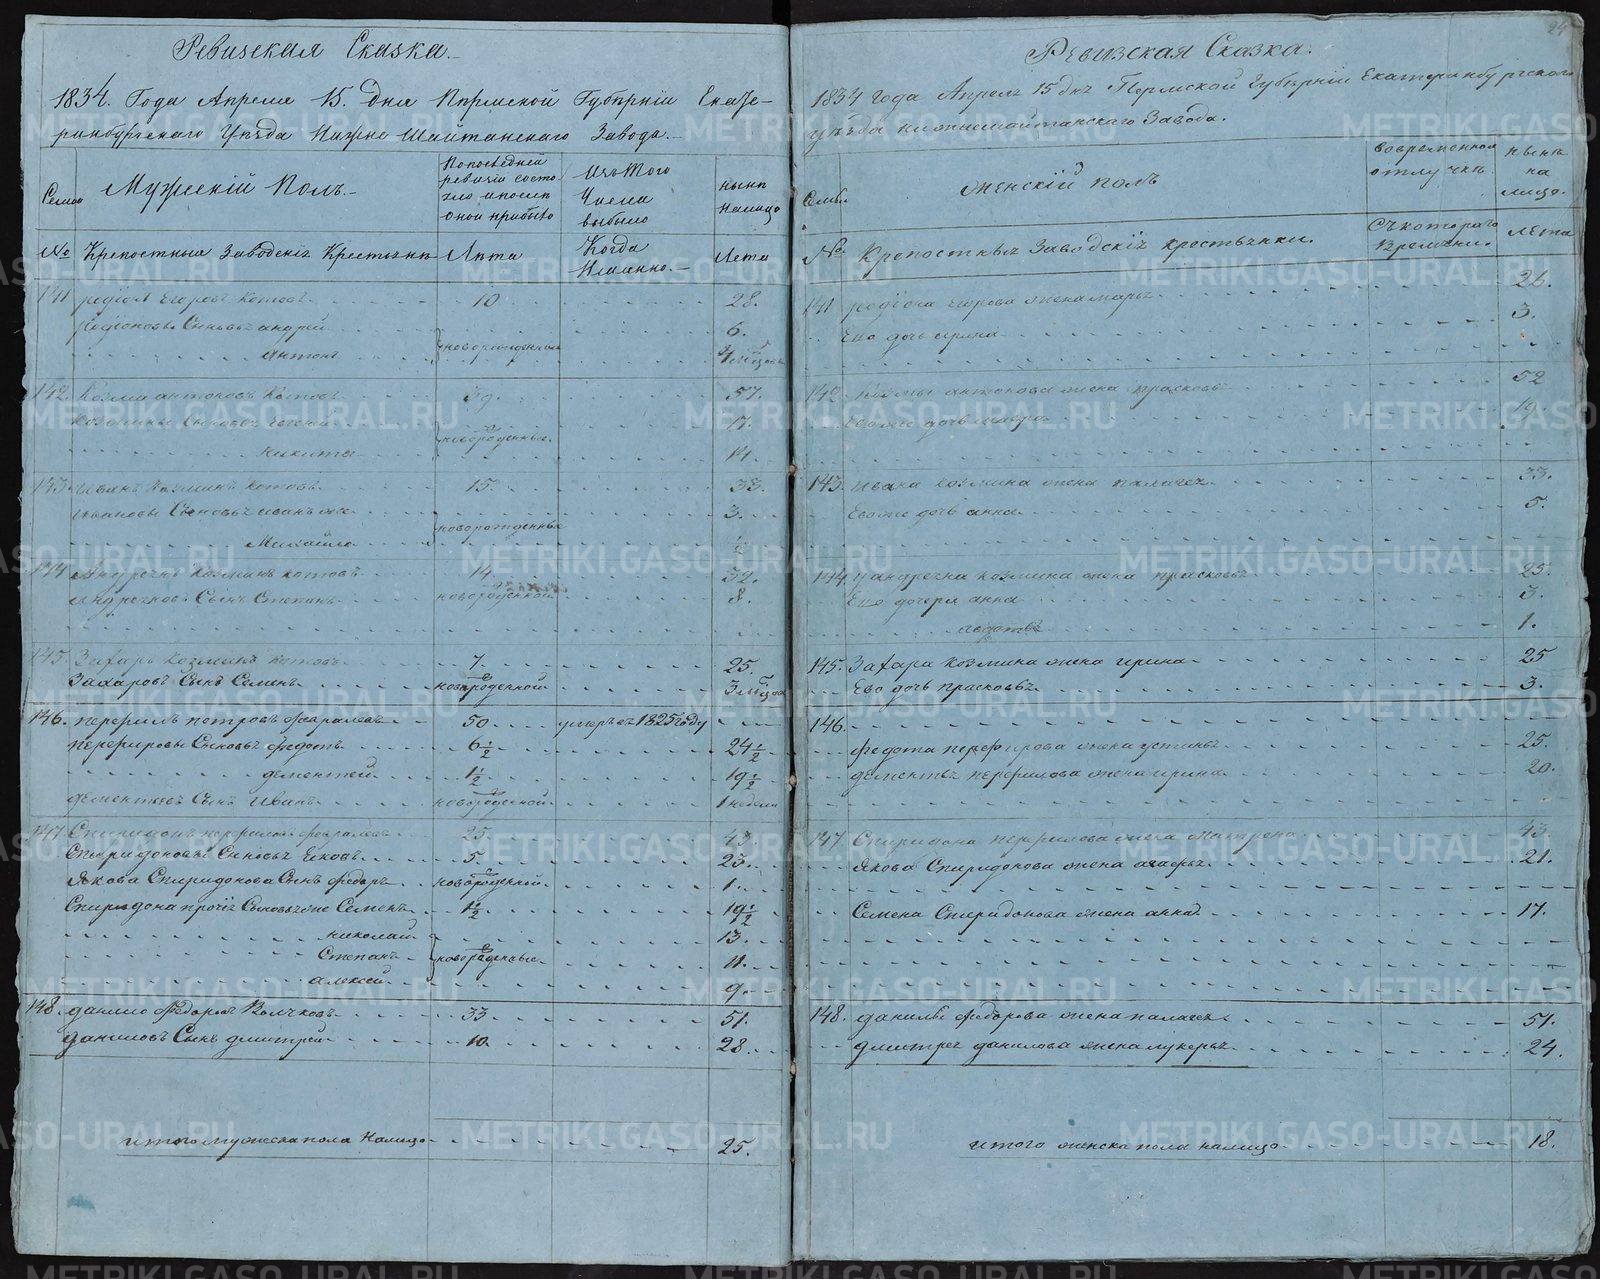 Ревизская Сказка.
1834. Года Апреля 15. Дня Пермской Губѣрнiи Екате-
ринбургскаго Уѣзда Нижне Шайтанскаго Завода.
Семьи
Мужескiй Полъ.
По последней
ревизiи состо
яло и после
оной прибыло
Изъ Того
Числа
выбыло
ныне
Налицо
№
Крепостныя Заводскiя Крестьяне
Лѣта
Когда
Именно.
Лета
141 родiон Егоровъ Котовъ 10 28.
родiоновы Сыновья андрей 6.
антонъ новорожденныя
142. Козма антоновъ Котовъ 39. 57.
17.
никита новорожденные. 14.
143. иванъ Козминъ Котовъ 15. 33.
ивановы Сыновья иванъ 3.
Михайло новорожденные 1/2
144 Андреянъ Козминъ Котовъ 14. 32.
Андреяновъ Сынъ Степанъ новорожденной 8.
145. Захаръ Козминъ Котовъ 7. 25.
Захаровъ Сынъ Семенъ новорожденной 3 м͠цовъ
146. перфилъ петровъ февралевъ 50 умеръ въ 1825 году
перфировы Сыновья федотъ 6 1/2 24 1/2
дементей 1 1/2 19 1/2
дементьевъ Сынъ Иванъ новорожденной 1 недели
147. Спиридонъ перфиловъ февралевъ 25. 43.
Спиридоновы Сыновья Яковъ 5. 23.
Якова Спиридонова Сынъ федоръ новорожденной 1.
Спиридона прочiя Сыновья же Семенъ 1 1/2 19 1/2
николай 13.
Степанъ новорожденные 11.
алексей 9.
148. данило Федоровъ Волчковъ 33 51.
даниловъ Сынъ дмитрей 10. 28.
итого мужеска пола Налицо 25.
24
Ревизская Сказка.
1834 года Апреля 15 дня Пермской Губѣрнiи Екатеринбургскаго
уѣзда нижнешайтанскаго Завода.
Семьи
женскiй полъ
Во временной
отлучке
ныне
на
лицо.
№
Крепостныя Заводскiя крестьянки.
Съ котораго
Времени.
лета
141 родiона Егорова жена марья 26.
Ево дочь ирина 3.
142 Козмы антонова жена прасковья 52
Ево же дочь мавра 19.
143. ивана козмина жена палагея 33.
Ево же дочь анна 5.
144. андреяна козмина жена прасковья 25.
Ево дочери анна 3.
авдотья 1.
145. Захара козмина жена ирина 25
Ево дочь прасковья 3.
146.
федота перфирова жена устинья 25.
дементья перфилова жена ирина 20.
147 Спиридона перфилова жена матрена 43.
Якова Спиридонова жена агафья 21.
Семена Спиридонова жена анна 17.
148. данилы федорова жена палагея 51.
дмитрея данилова жена лукерья 24.
итого женска пола налицо 18.
METRIKI.GASO-URAL.RU